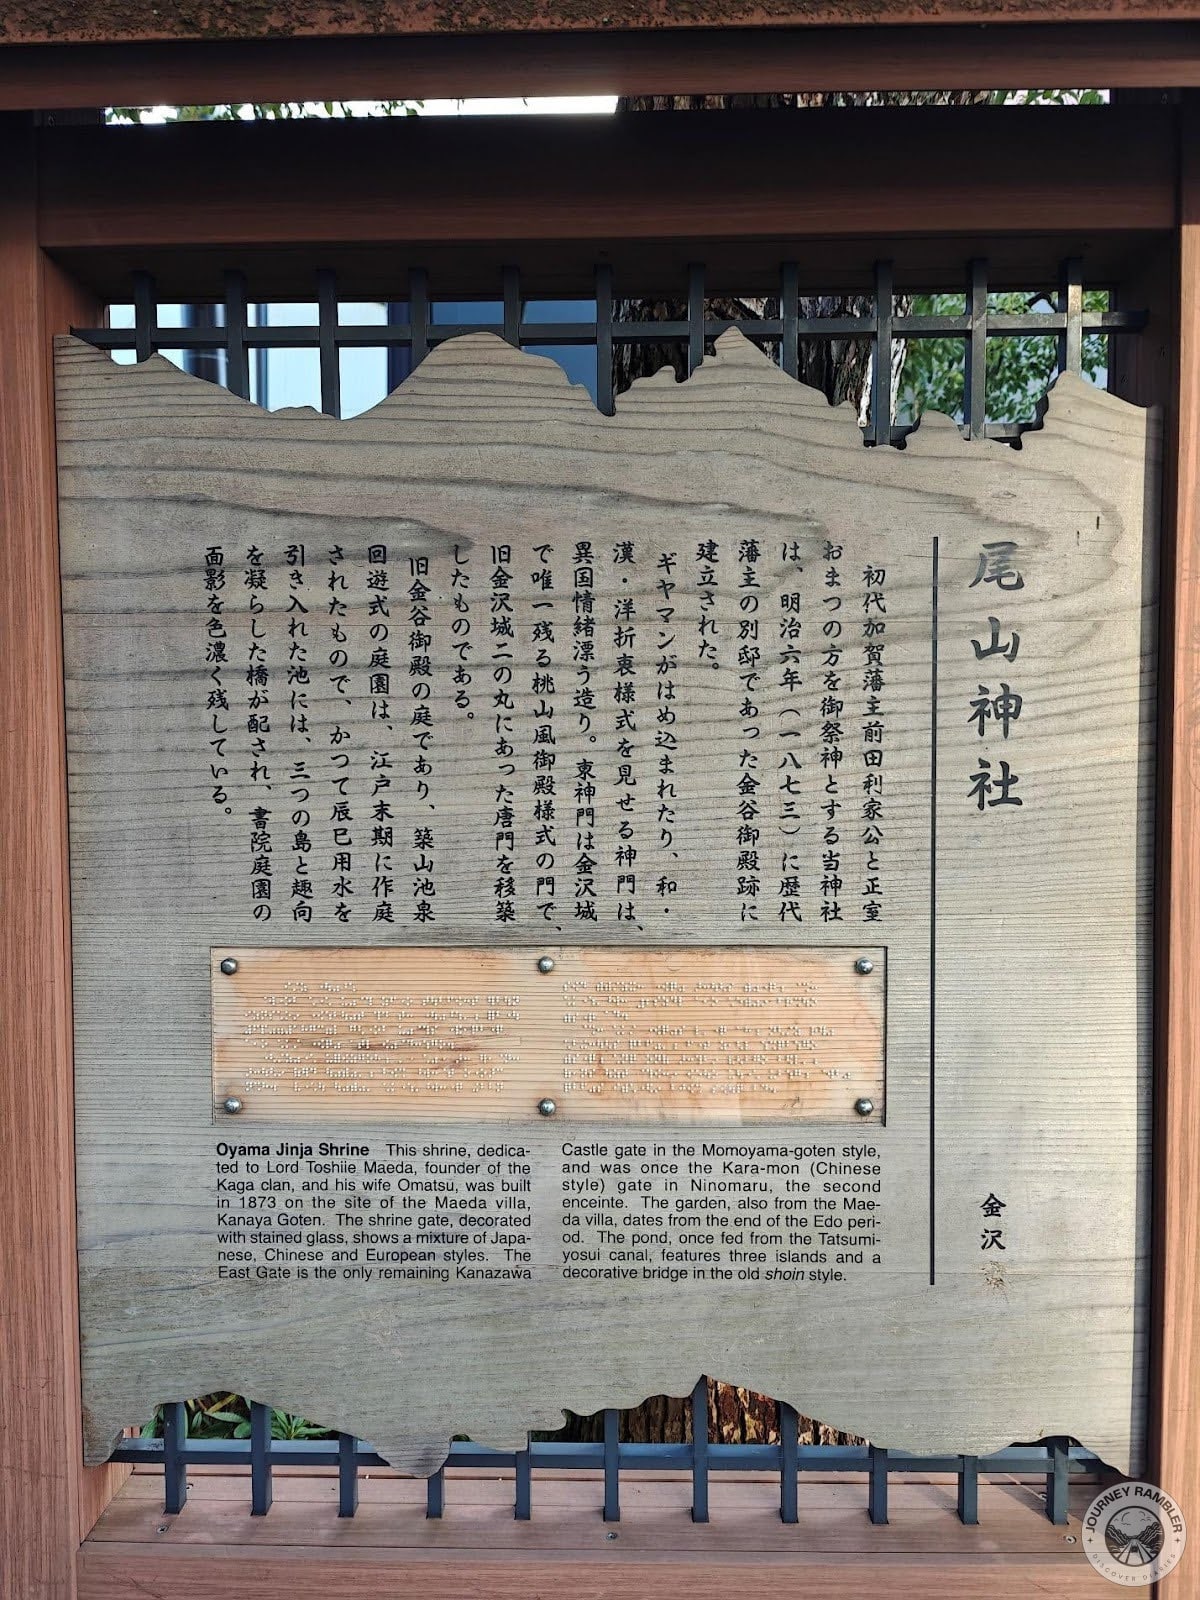 尾山神社
初代加賀藩主前田利家公と正室
おまつの方を御祭神とする当神社
は、明治六年（一八七三）に歴代
藩主の別邸であった金谷御殿跡に
建立された。
ギヤマンがはめ込まれたり、和・
漢・洋折衷様式を見せる神門は、
異国情緒漂う造り。東神門は金沢城
で唯一残る桃山風御殿様式の門で、
旧金沢城二の丸にあった唐門を移築
したものである。
旧金谷御殿の庭であり、築山池泉
回遊式の庭園は、江戸末期に作庭
されたもので、かつて辰巳用水を
引き入れた池には、三つの島と趣向
を凝らした橋が配され、書院庭園の
面影を色濃く残している。
金沢
Oyama Jinja Shrine This shrine, dedica-
ted to Lord Toshiie Maeda, founder of the
Kaga clan, and his wife Omatsu, was built
in 1873 on the site of the Maeda villa,
Kanaya Goten. The shrine gate, decorated
with stained glass, shows a mixture of Japa-
nese, Chinese and European styles. The
East Gate is the only remaining Kanazawa
Castle gate in the Momoyama-goten style,
and was once the Kara-mon (Chinese
style) gate in Ninomaru, the second
enceinte. The garden, also from the Mae-
da villa, dates from the end of the Edo peri-
od. The pond, once fed from the Tatsumi-
yosui canal, features three islands and a
decorative bridge in the old shoin style.
JOURNEY RAMBLER
DISCOVER DIARIES